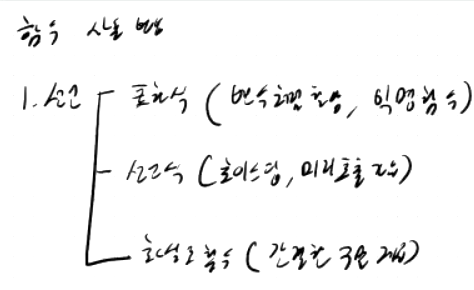 함수 사용 방법
1. 선언 표현식 (변수처럼 활용, 익명함수)
선언식 (호이스팅, 미리 호출 가능)
화살표 함수 (간결한 구문 제공)